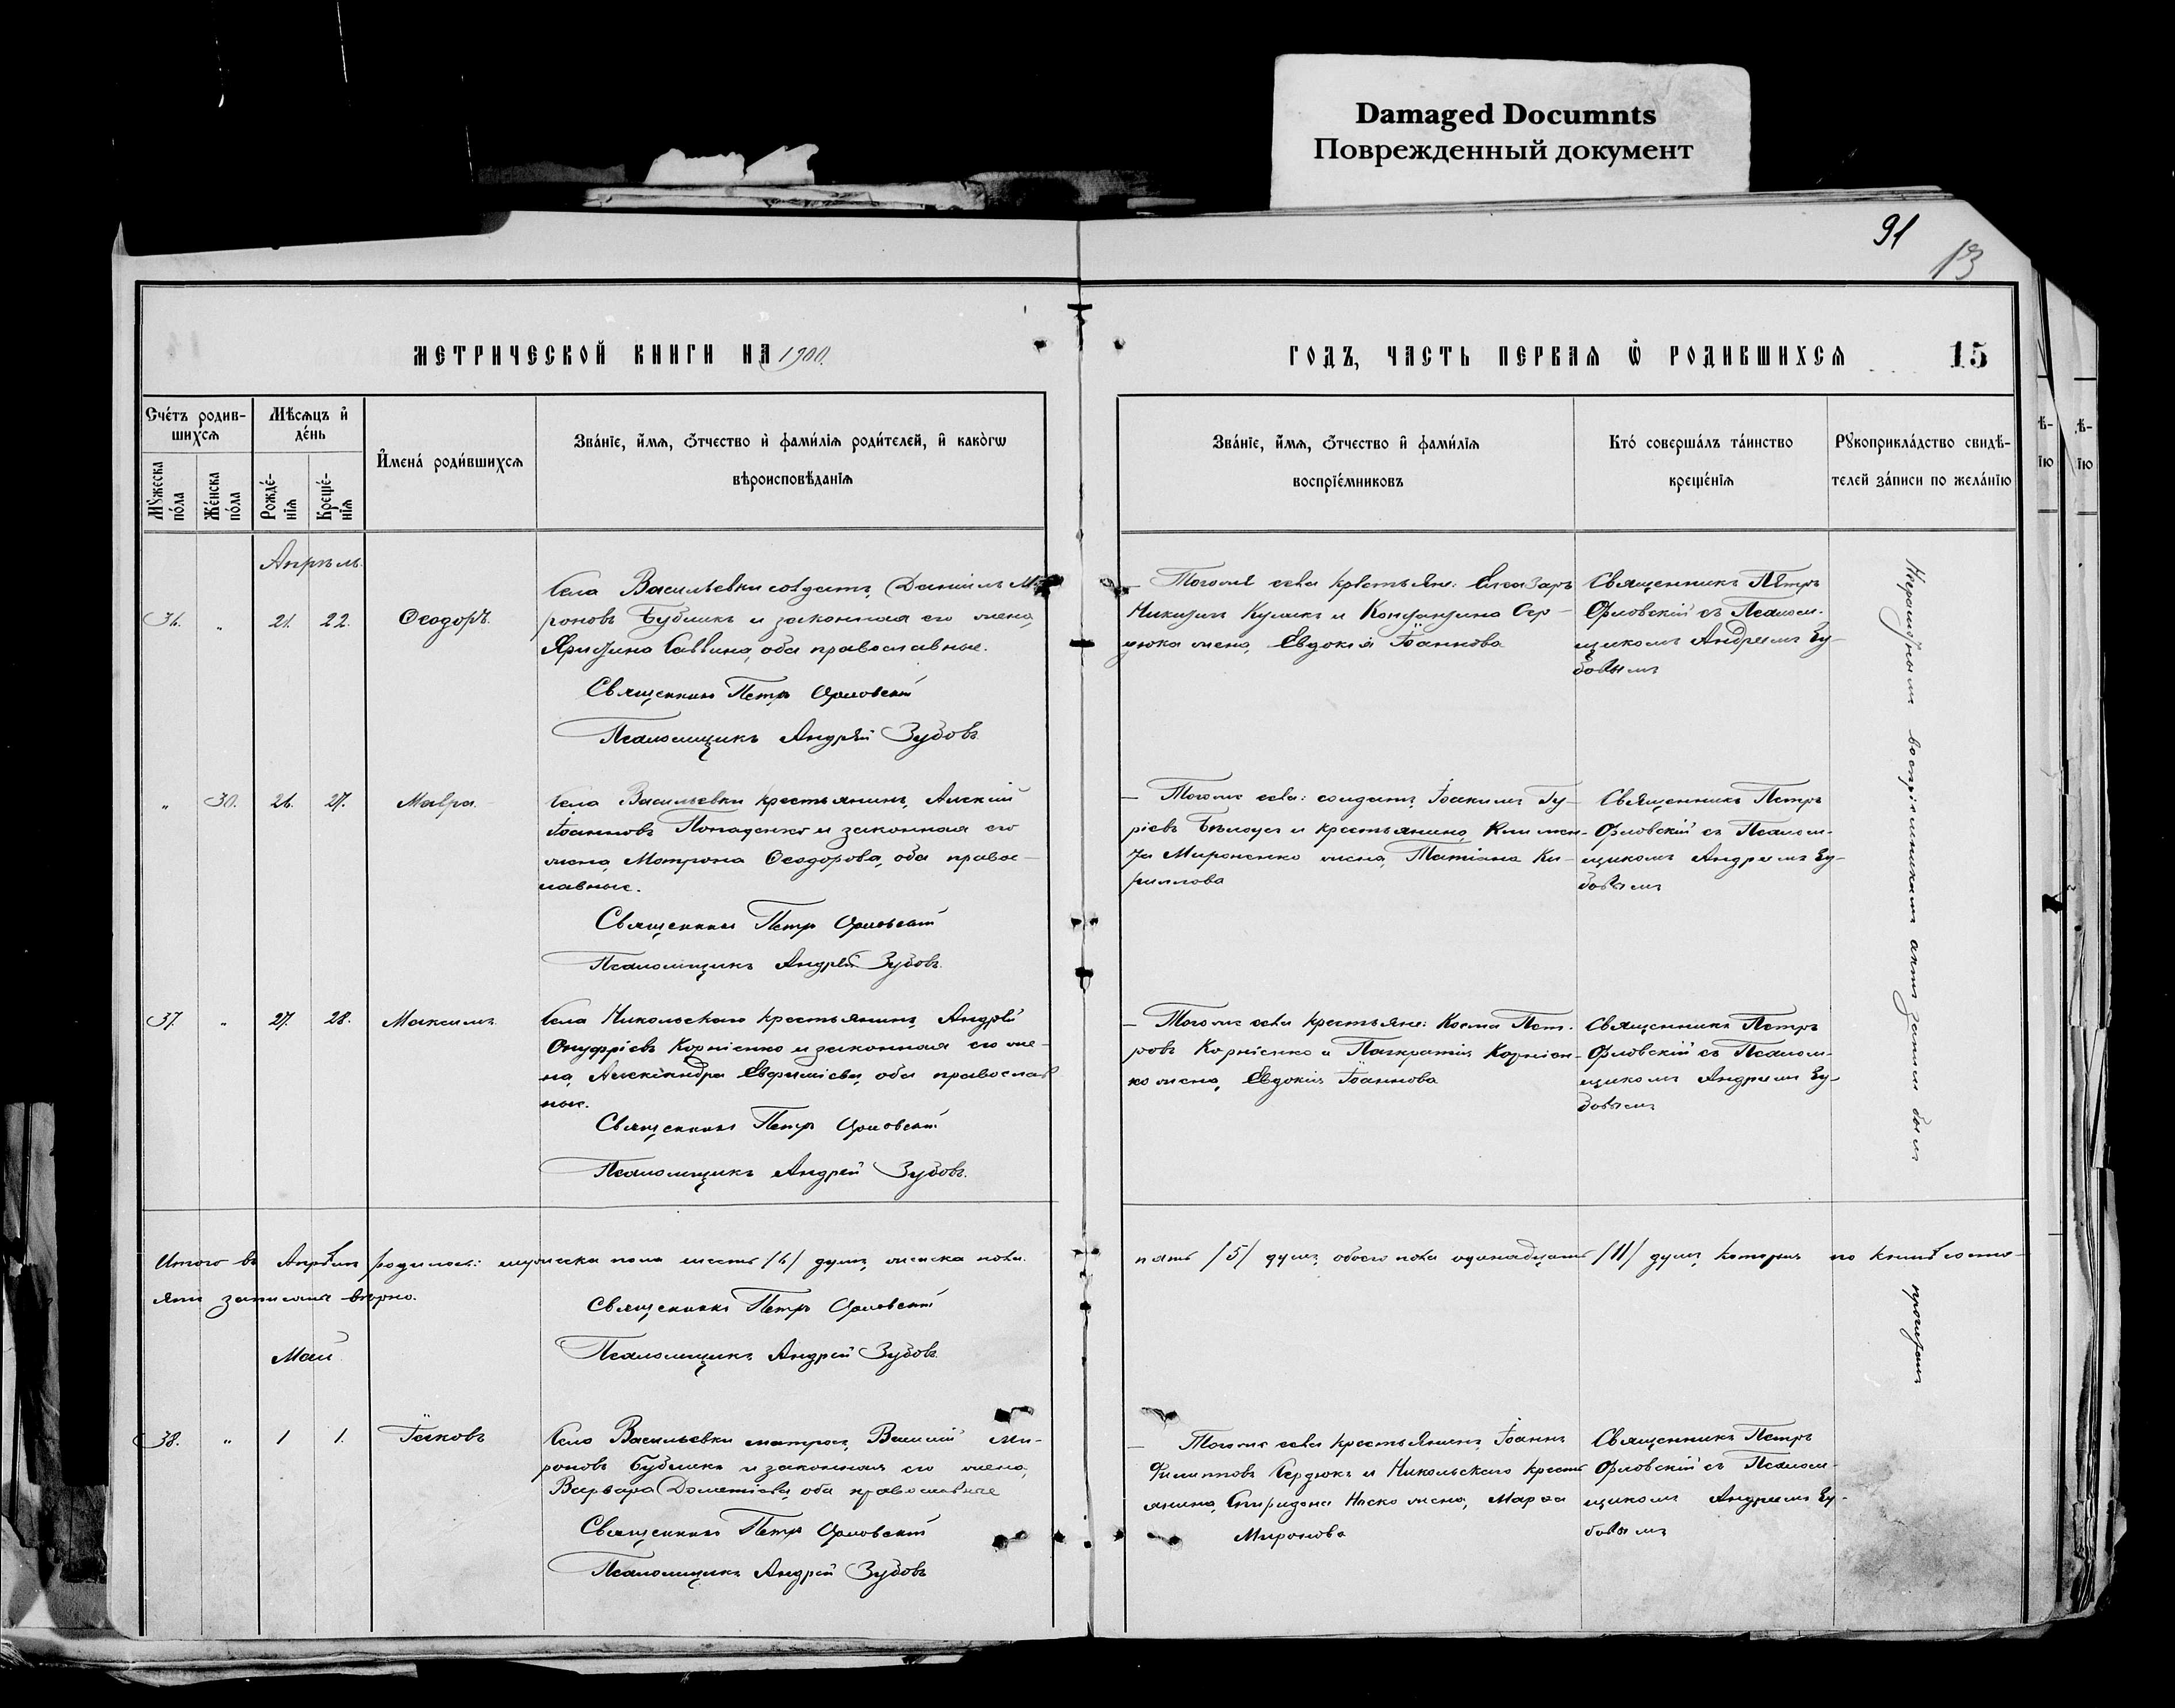 Damaged Documnts
Поврежденный документ
91
13
МЕТРИЧЕСКОЙ КНИГИ НА 1900.
ГОДЪ, ЧАСТЬ ПЕРВАЯ Ѡ РОДИВШИХСЯ
15
Счéтъ родив-
шихсѧ
Мꙋжеска
пóла
Жéнска
пóла
Мѣсѧцъ и҆
дéнь
Рождé-
нїѧ
Крещé-
нїѧ
И҆менá роди́вшихсѧ
Звáнїе, и҆́мѧ, ѻ҆́тчество и҆ фами́лїѧ роди́телей, и҆ какóгѡ
вѣроисповѣ́данїѧ
Звáнїе, и҆́мѧ, ѻ҆́тчество и҆ фами́лїѧ
воспрїéмниковъ
Ктó совершáлъ тáинство
крещéнїѧ
Рꙋкоприклáдство свидѣ́-
телей зáписи по желáнїю
Апрѣль.
36. „ 21. 22. Ѳеодоръ.
Села Васильевки солдатъ, Даніилъ Ми-
роновъ Бубликъ и законная его жена,
Христина Саввина, оба православные.
Священникъ Петръ Орловскій
Псаломщикъ Андрей Зубовъ.
— Тогоже села крестьяне: Елеазаръ
Никитинъ Куликъ и Константина Сер-
дюка жена, Евдокія Іоаннова
Священникъ Петръ
Орловскій съ Псалом-
щикомъ Андреемъ Зу-
бовымъ
„ 30. 26. 27. Мавра.
Села Васильевки крестьянинъ, Алексій
Іоанновъ Попаденко и законная его
жена, Матрона Ѳеодорова, оба правос-
лавные.
Священникъ Петръ Орловскій
Псаломщикъ Андрей Зубовъ.
— Тогоже села: солдатъ, Іоакимъ Гу-
ріевъ Бѣлоусъ и крестьянина, Климен-
та Мироненко жена, Татіана Ки-
риллова
Священникъ Петръ
Орловскій съ Псалом-
щикомъ Андреемъ Зу-
бовымъ
37. „ 27. 28. Максимъ.
Села Никольскаго крестьянинъ, Андрей
Онуфріевъ Корніенко и законная его же-
на, Александра Евфиміева, оба православ
ные.
Священникъ Петръ Орловскій
Псаломщикъ Андрей Зубовъ.
— Тогоже села крестьяне: Косма Пет-
ровъ Корніенко и Панкратія Корніен-
ко жена, Евдокія Іоаннова
Священникъ Петръ
Орловскій съ Псалом-
щикомъ Андреемъ Зу-
бовымъ
Итого въ Апрѣлѣ родилось: мужеска пола шесть /6/ душъ, женска пола
пять /5/ душъ, обоего пола одинадцать /11/ душъ,
записаны вѣрно.
Священникъ Петръ Орловскій
Псаломщикъ Андрей Зубовъ.
Май
38. „ 1 1. Іаковъ
Села Васильевки матросъ, Василій Ми-
роновъ Бубликъ и законная его жена,
Варвара Дометіева, оба православные
Священникъ Петръ Орловскій
Псаломщикъ Андрей Зубовъ
— Тогоже села крестьянинъ, Іоаннъ
Филипповъ Сердюкъ и Никольскаго кресть
янина, Спиридона жена, Марѳа
Миронова
Священникъ Петръ
Орловскій съ Псалом-
щикомъ Андреемъ Зу-
бовымъ
Неграмотнымъ воспріемникамъ актъ записи былъ
прочитанъ